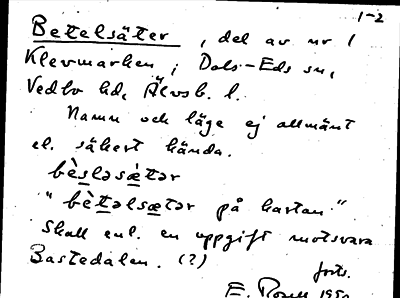 1-2
Bettelsäter, del av nr 1
Klevmarken, Dals-Eds sn,
Vedbo hd, Älvsb. l.
Namn och läge ej allmänt
el. säkert kända.
bès̲ləsæ̀tər
"bèt̲əlsæ̲tər på kartan"
Skall enl. en uppgift motsvara
Bastedalen. (?)
forts.
E. Rosell 1950